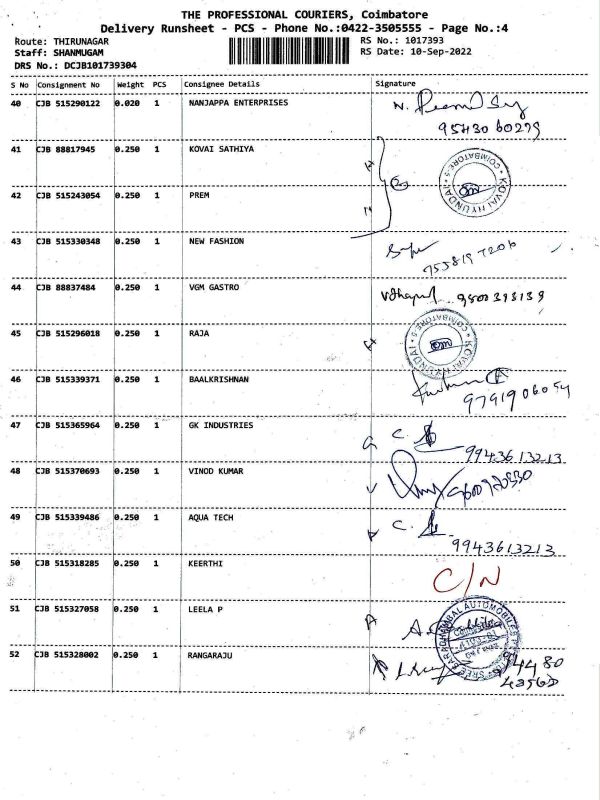 THE PROFESSIONAL COURIERS, Coimbatore
Delivery Runsheet - PCS - Phone No.:0422-3505555 - Page No.:4
Route: THIRUNAGAR
RS No.: 1017393
Staff: SHANMUGAM
RS Date: 10-Sep-2022
DRS No.: DCJB101739304
S No Consignment No Weight PCS Consignee Details Signature
40 CJB 515290122 0.020 1 NANJAPPA ENTERPRISES
95430 60279
41 CJB 88817945 0.250 1 KOVAI SATHIYA
KOVAI HYUNDAI * COIMBATORE-5 *
42 CJB 515243054 0.250 1 PREM
43 CJB 515330348 0.250 1 NEW FASHION
44 CJB 88837484 0.250 1 VGM GASTRO
45 CJB 515296018 0.250 1 RAJA
KOVAI HYUNDAI * COIMBATORE-5 *
46 CJB 515339371 0.250 1 BAALKRISHNAN
47 CJB 515365964 0.250 1 GK INDUSTRIES
9943613213
48 CJB 515370693 0.250 1 VINOD KUMAR
49 CJB 515339486 0.250 1 AQUA TECH
9943613213
50 CJB 515318285 0.250 1 KEERTHI
C/N
51 CJB 515327058 0.250 1 LEELA P
52 CJB 515328002 0.250 1 RANGARAJU